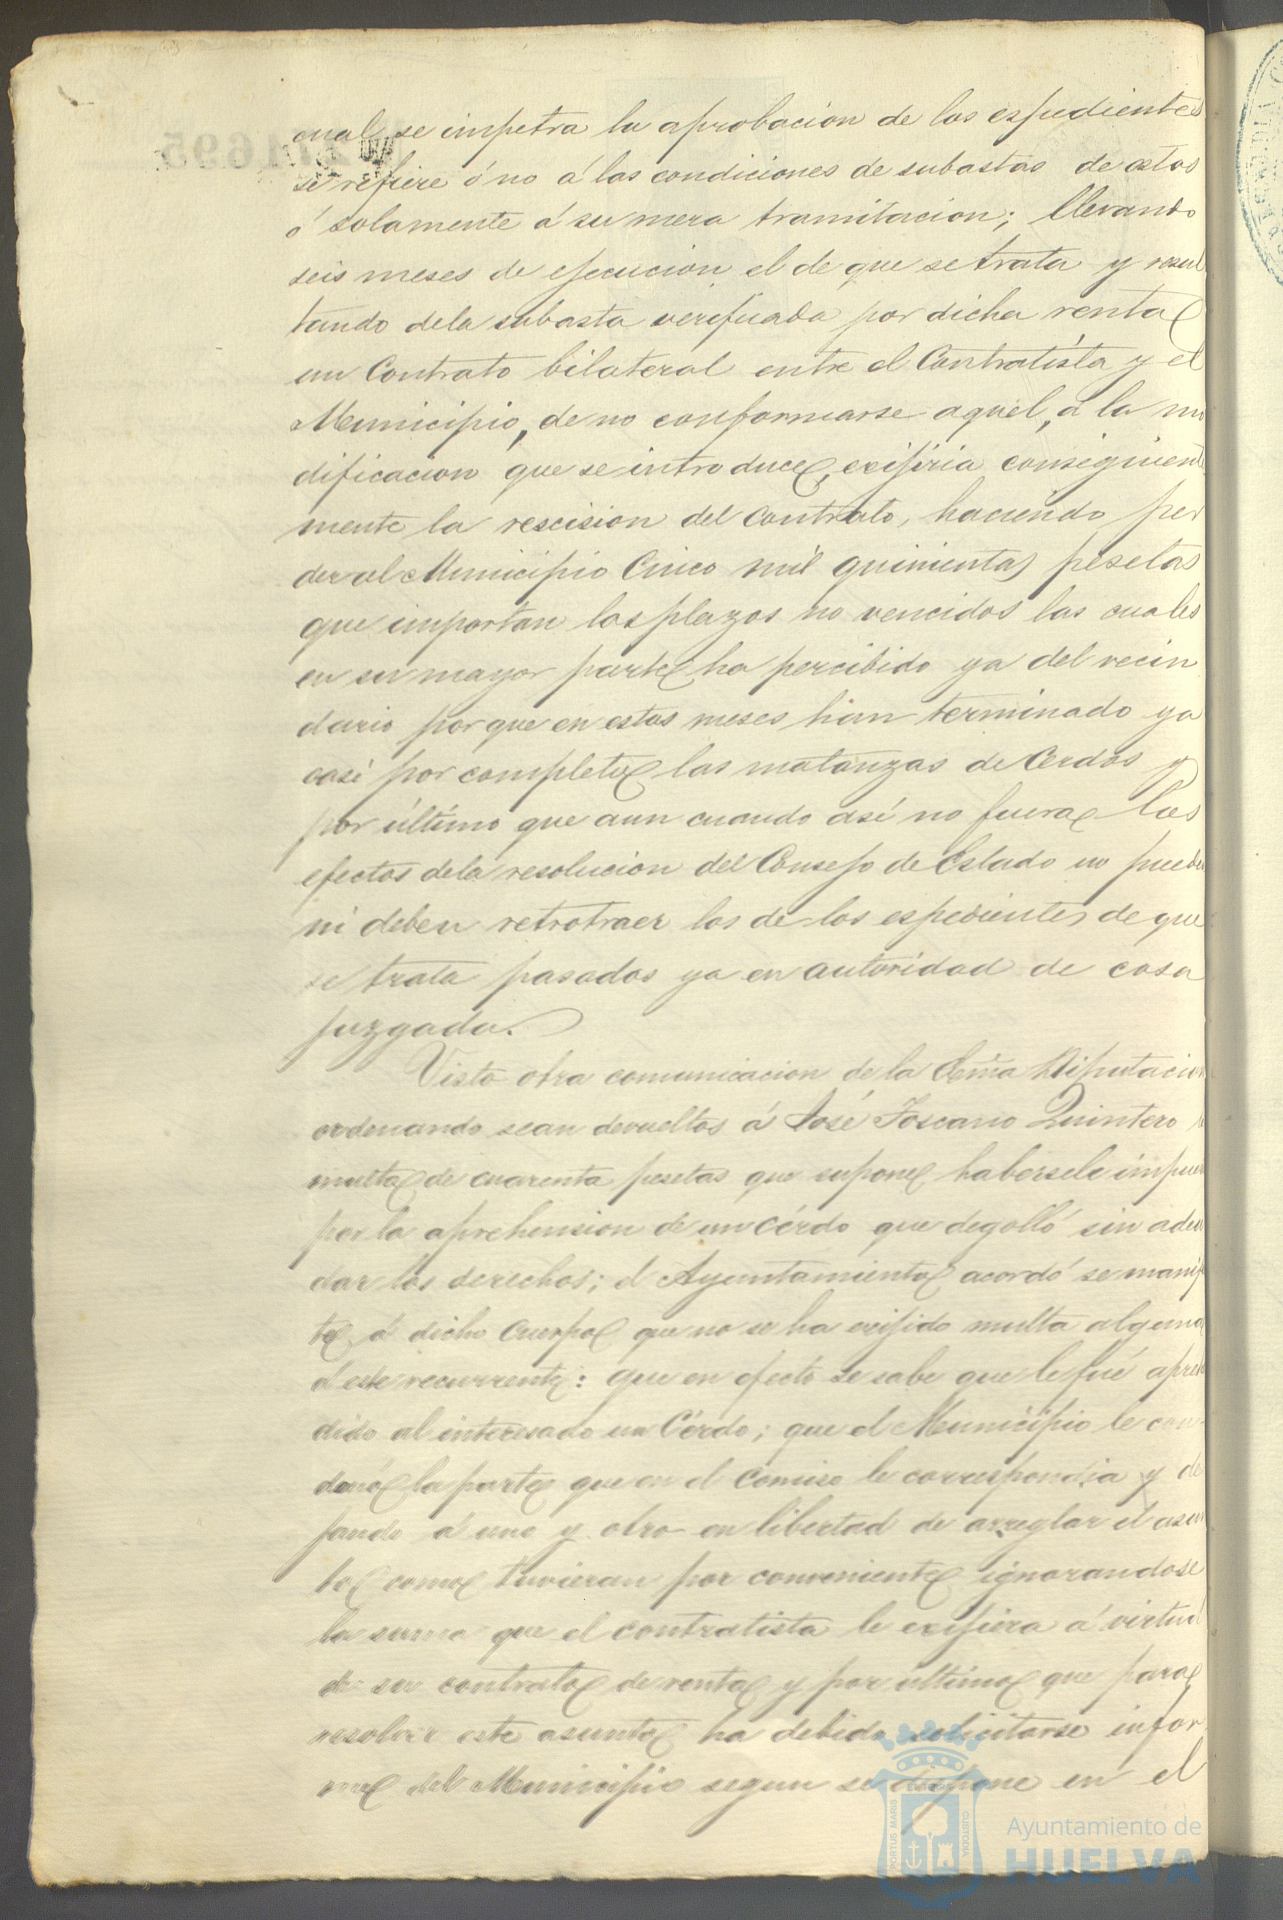 cual se impetra la aprobacion de los espedientes
se refiere ó no á las condiciones de subastas de estos
ó solamente á su mera tramitacion; llevando
seis meses de ejecucion el de que se trata y resul
tando dela subasta verificada por dicha renta
un Contrato bilateral entre el Contratista y el
Municipio, de no conformarse aquel, á la mo
dificacion que se introduce, exijiria consiguiente
mente la rescision del contrato, haciendo per
der al Municipio Cinco mil quinientas pesetas
que importan los plazos no vencidos las cuales
en su mayor parte ha percibido ya del vecin
dario porque en estos meses han terminado ya
casi por completo las matanzas de Cerdos y
por último que aun cuando asi no fuera los
efectos dela resolucion del Consejo de Estado no pueden
ni deben retrotraer los de los espedientes de que
se trata pasados ya en autoridad de cosa
juzgada.
Visto otra comunicacion de la Diputacion
ordenando sean devueltos á José Toscano Quintero
multa de cuarenta pesetas que supone habersele impues
por la aprehension de un cérdo que degolló sin adeu
dar los derechos; el Ayuntamiento acordó se manifi
te á dicho Cuerpo que no se ha exijido multa alguna
á este recurrente: que en efecto se sabe que le fué apren
dido al interesado un Cérdo; que el Municipio le con
donó la parte que en el comiso le correspondia y de
jando á uno y otro en libertad de arreglar el asun
to como tuvieran por conveniente ignorandose
la suma que el contratista le exijiera á virtud
de su contrato de renta y por ultimo que para
resolver este asunto ha debido solicitarse infor
me del Municipio segun se dispone en el
PORTUS MARIS
CUSTODIA
Ayuntamiento de
HUELVA